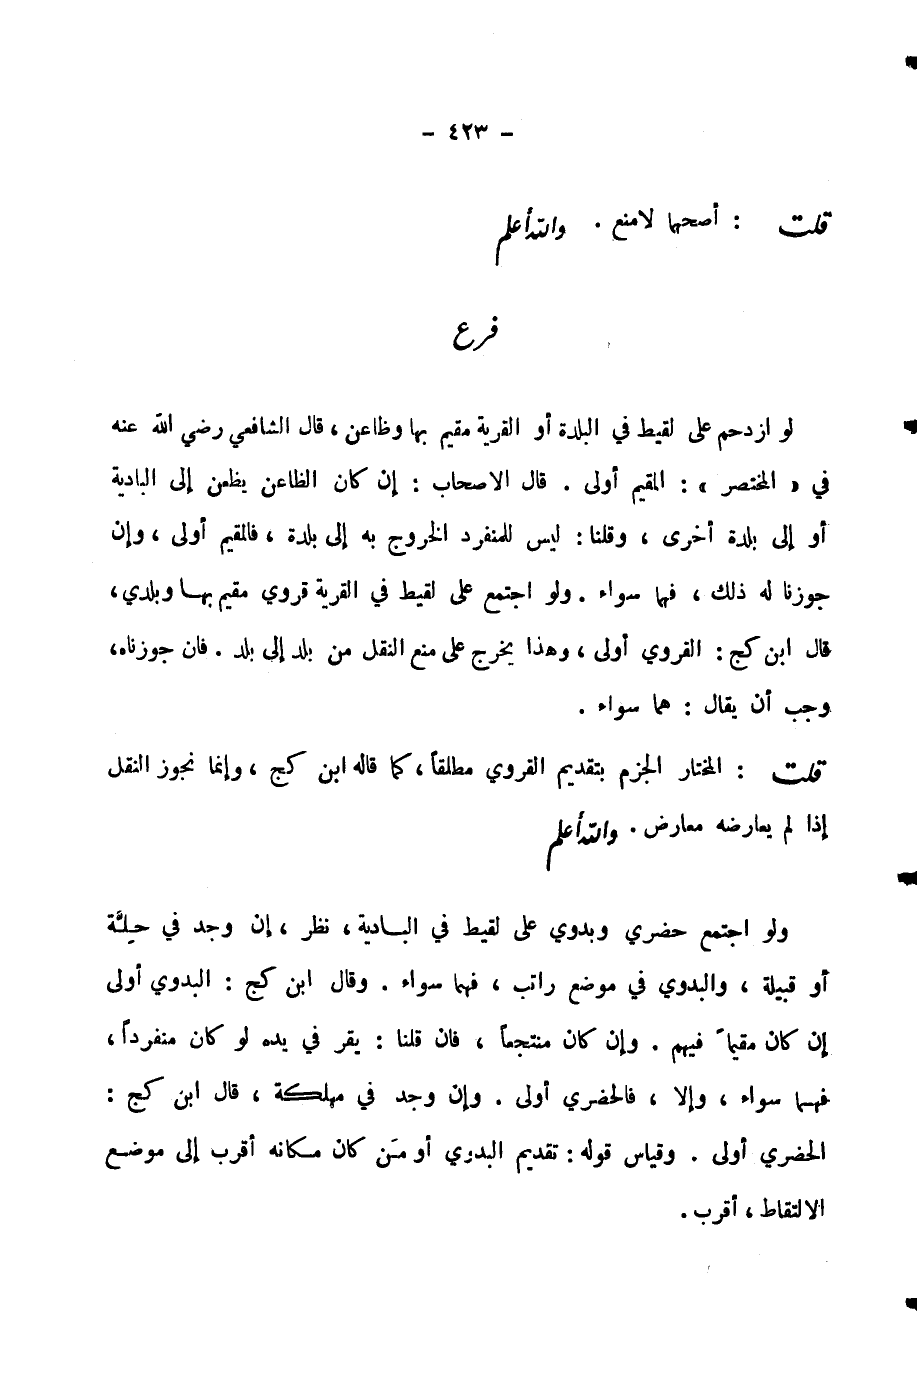 - ٤٢٣ -
قلت : أصحها لا منع . والله أعلم
فرع
لو ازدحم على لقيط في البلدة أو القرية مقيم بها وظاعن ، قال الشافعي رضي الله عنه
في « المختصر » : المقيم أولى . قال الاصحاب : إن كان الظاعن يظعن إلى البادية
أو إلى بلدة أخرى ، وقلنا : ليس للمنفرد الخروج به إلى بلدة ، فالمقيم أولى ، وإن
جوزنا له ذلك ، فهما سواء . ولو اجتمع على لقيط في القرية قروي مقيم بها وبلدي ،
قال ابن كج : القروي أولى ، وهذا يخرج على منع النقل من بلد إلى بلد . فان جوزناه ،
وجب أن يقال : هما سواء .
قلت : المختار الجزم بتقديم القروي مطلقاً ، كما قاله ابن كج ، وإنما نجوز النقل
إذا لم يعارضه معارض . والله أعلم
ولو اجتمع حضري وبدوي على لقيط في البادية ، نظر ، إن وجد في حِلَّة
أو قبيلة ، والبدوي في موضع راتب ، فهما سواء . وقال ابن كج : البدوي أولى
إن كان مقيماً فيهم . وإن كان منتجعاً ، فان قلنا : يقر في يده لو كان منفرداً ،
فهما سواء ، وإلا ، فالحضري أولى . وإن وجد في مهلكة ، قال ابن كج :
الحضري أولى . وقياس قوله : تقديم البدوي أو مَن كان مكانه أقرب إلى موضع
الالتقاط ، أقرب .